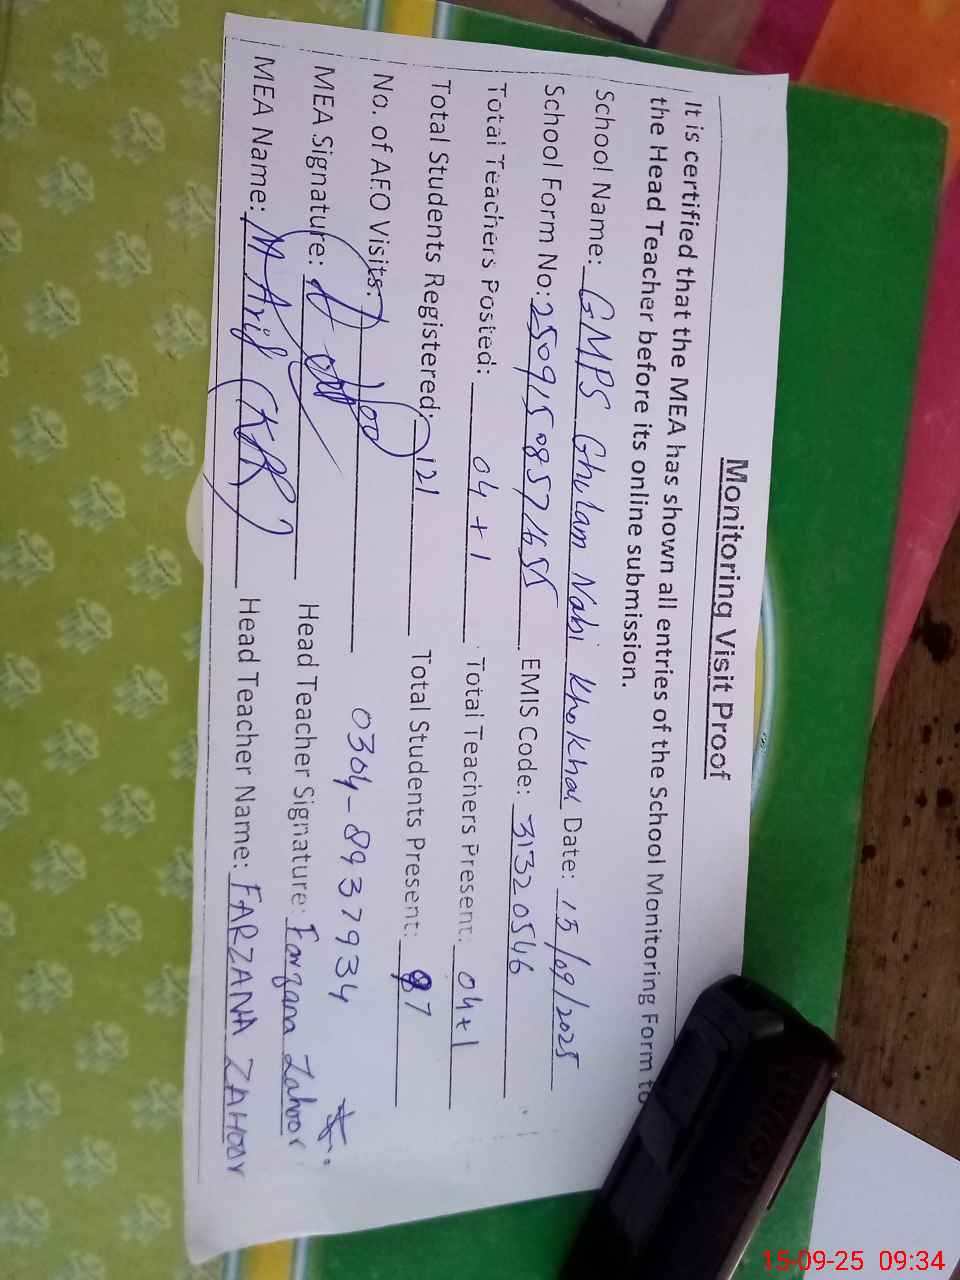 Monitoring Visit Proof
It is certified that the MEA has shown all entries of the School Monitoring Form to
the Head Teacher before its online submission.
School Name: GMPS Ghulam Nabi Khokhar Date: 15/09/2025
School Form No: 250915085716 EMIS Code: 31320546
Total Teachers Posted: 04+1 Total Teachers Present: 04+1
Total Students Registered: 121 Total Students Present: 97
No. of AEO Visits: 0304-8937934
MEA Signature: Head Teacher Signature: Farzana Zahoor
MEA Name: M Arif (KR) Head Teacher Name: FARZANA ZAHOOR
15-09-25 09:34